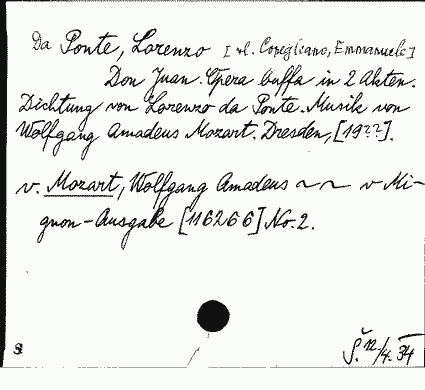 Da Ponte, Lorenzo [vl. Conegliano, Emmanuele]
Don Juan. Opera buffa in 2 Akten.
Dichtung von Lorenzo da Ponte. Musik von
Wolfgang Amadeus Mozart. Dresden, [19??].
v. Mozart, Wolfgang Amadeus ~~ v Mi-
gnon-Ausgabe [116266] No. 2.
Š. 12/4. 34